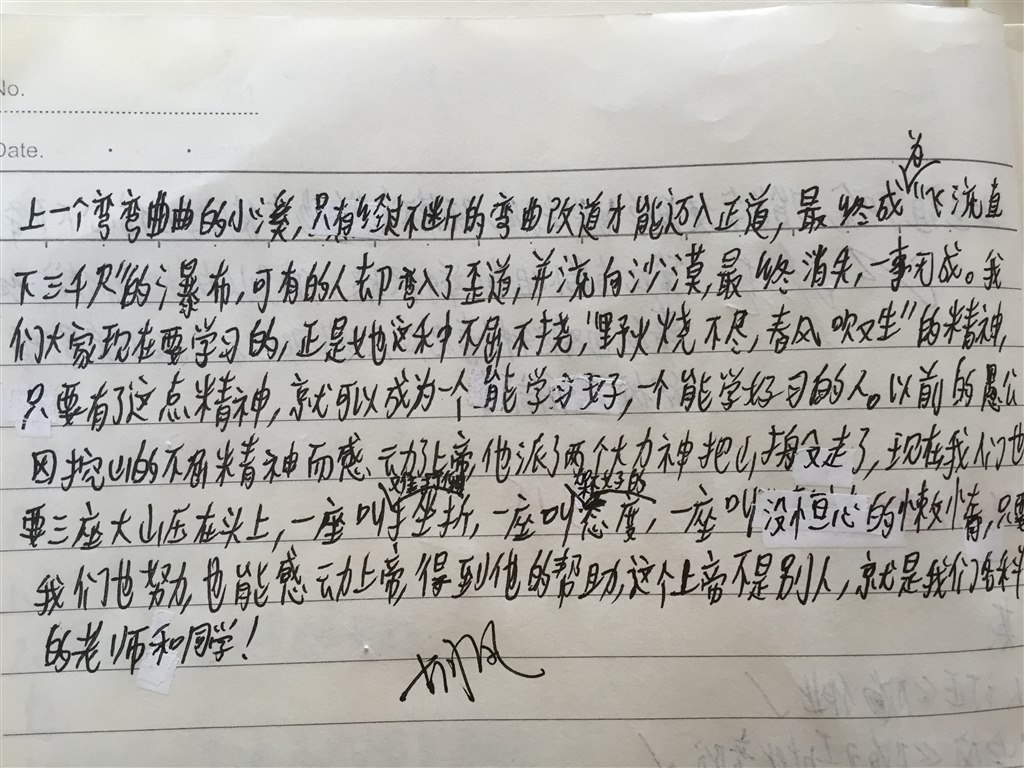 No.
Date.
为
上一个弯弯曲曲的小溪,只有经过不断的弯曲改道才能迈入正道,最终成"飞流直
下三千尺"的瀑布,可有的人却弯入了歪道,并流向沙漠,最终消失,一事无成。我
们大家现在要学习的,正是她这种不屈不挠,"野火烧不尽,春风吹又生"的精神,
只要有了这点精神,就可以成为一个能学习好,一个能学好习的人。以前的愚公
因挖山的不断精神而感动了上帝,他派了两个大力神把山搬走了,现在我们也
要三座大山压在头上,一座叫挫折,一座叫态度,一座叫没恒心的懒惰,只要
我们也努力,也能感动上帝,得到他的帮助,这个上帝不是别人,就是我们各科
的老师和同学!